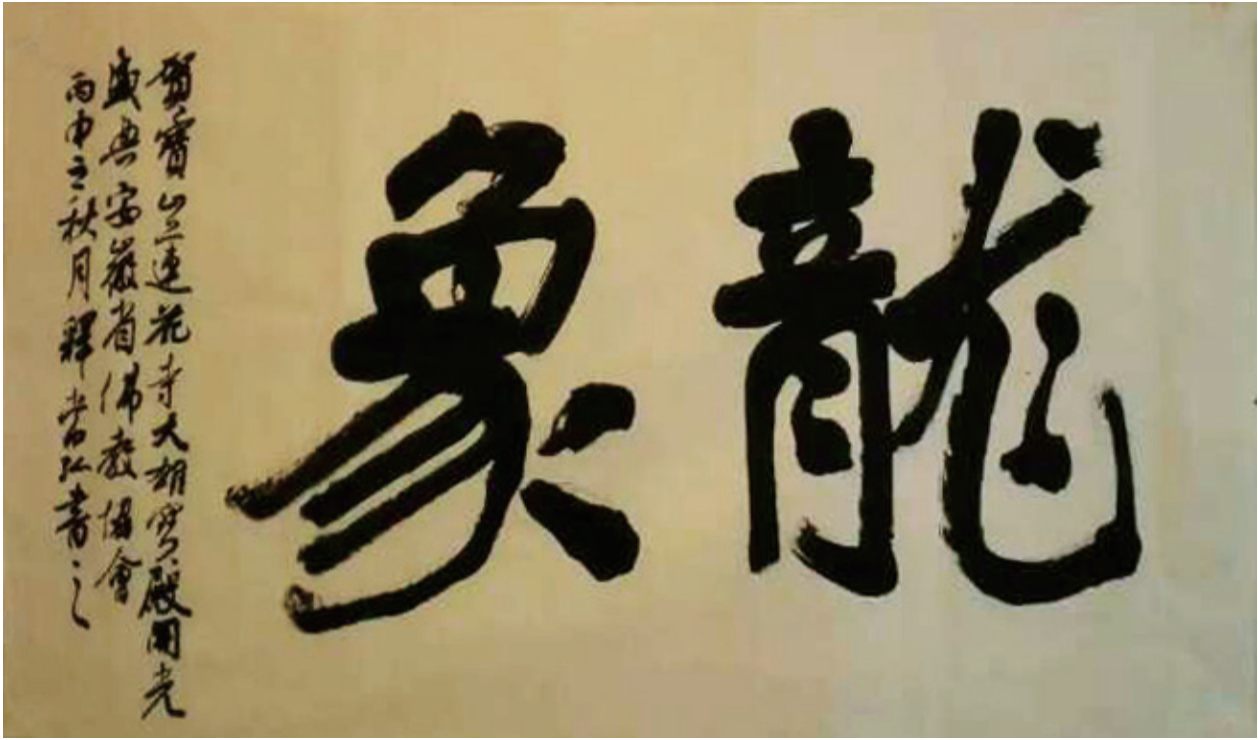 龍象
賀寶山三連花寺大雄寶殿開光
盛典安徽省佛教協會
丙申之秋月釋常弘書之